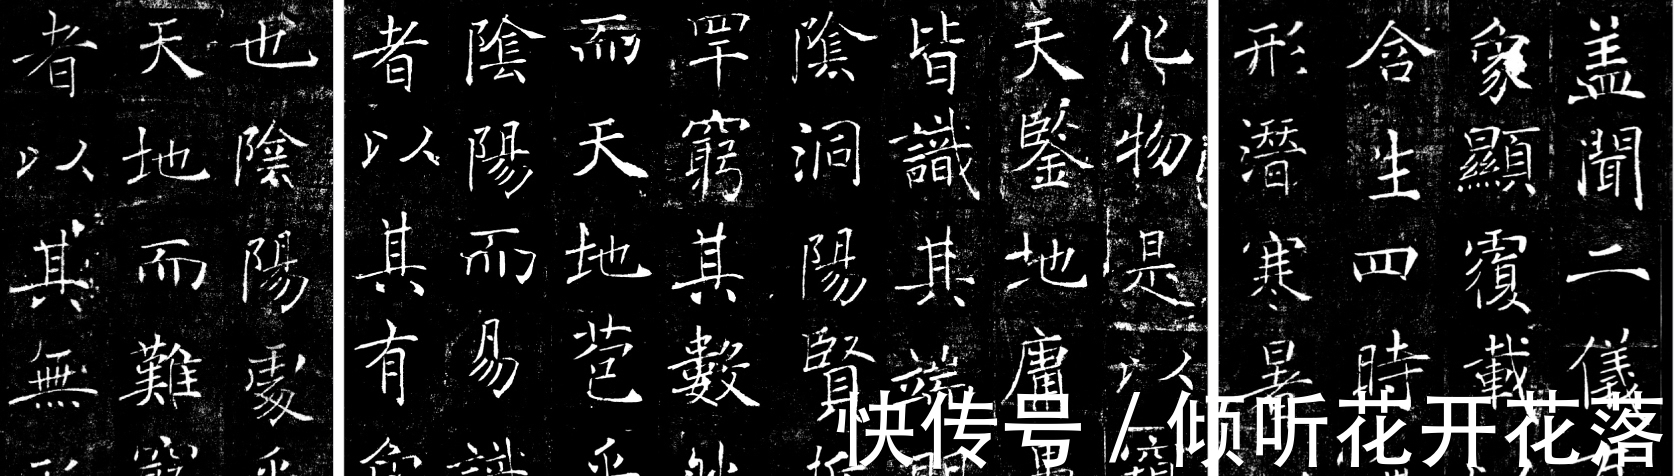 盖聞二儀
象顯覆載
含生四時
形潛寒暑
化物是以
天鑒地庸
皆識其端
陰洞陽賢
罕窮其數
而天地苞
陰陽而易識
者以其有象
也陰陽處乎
天地而難窮
者以其無形
快传号 / 倾听花开花落